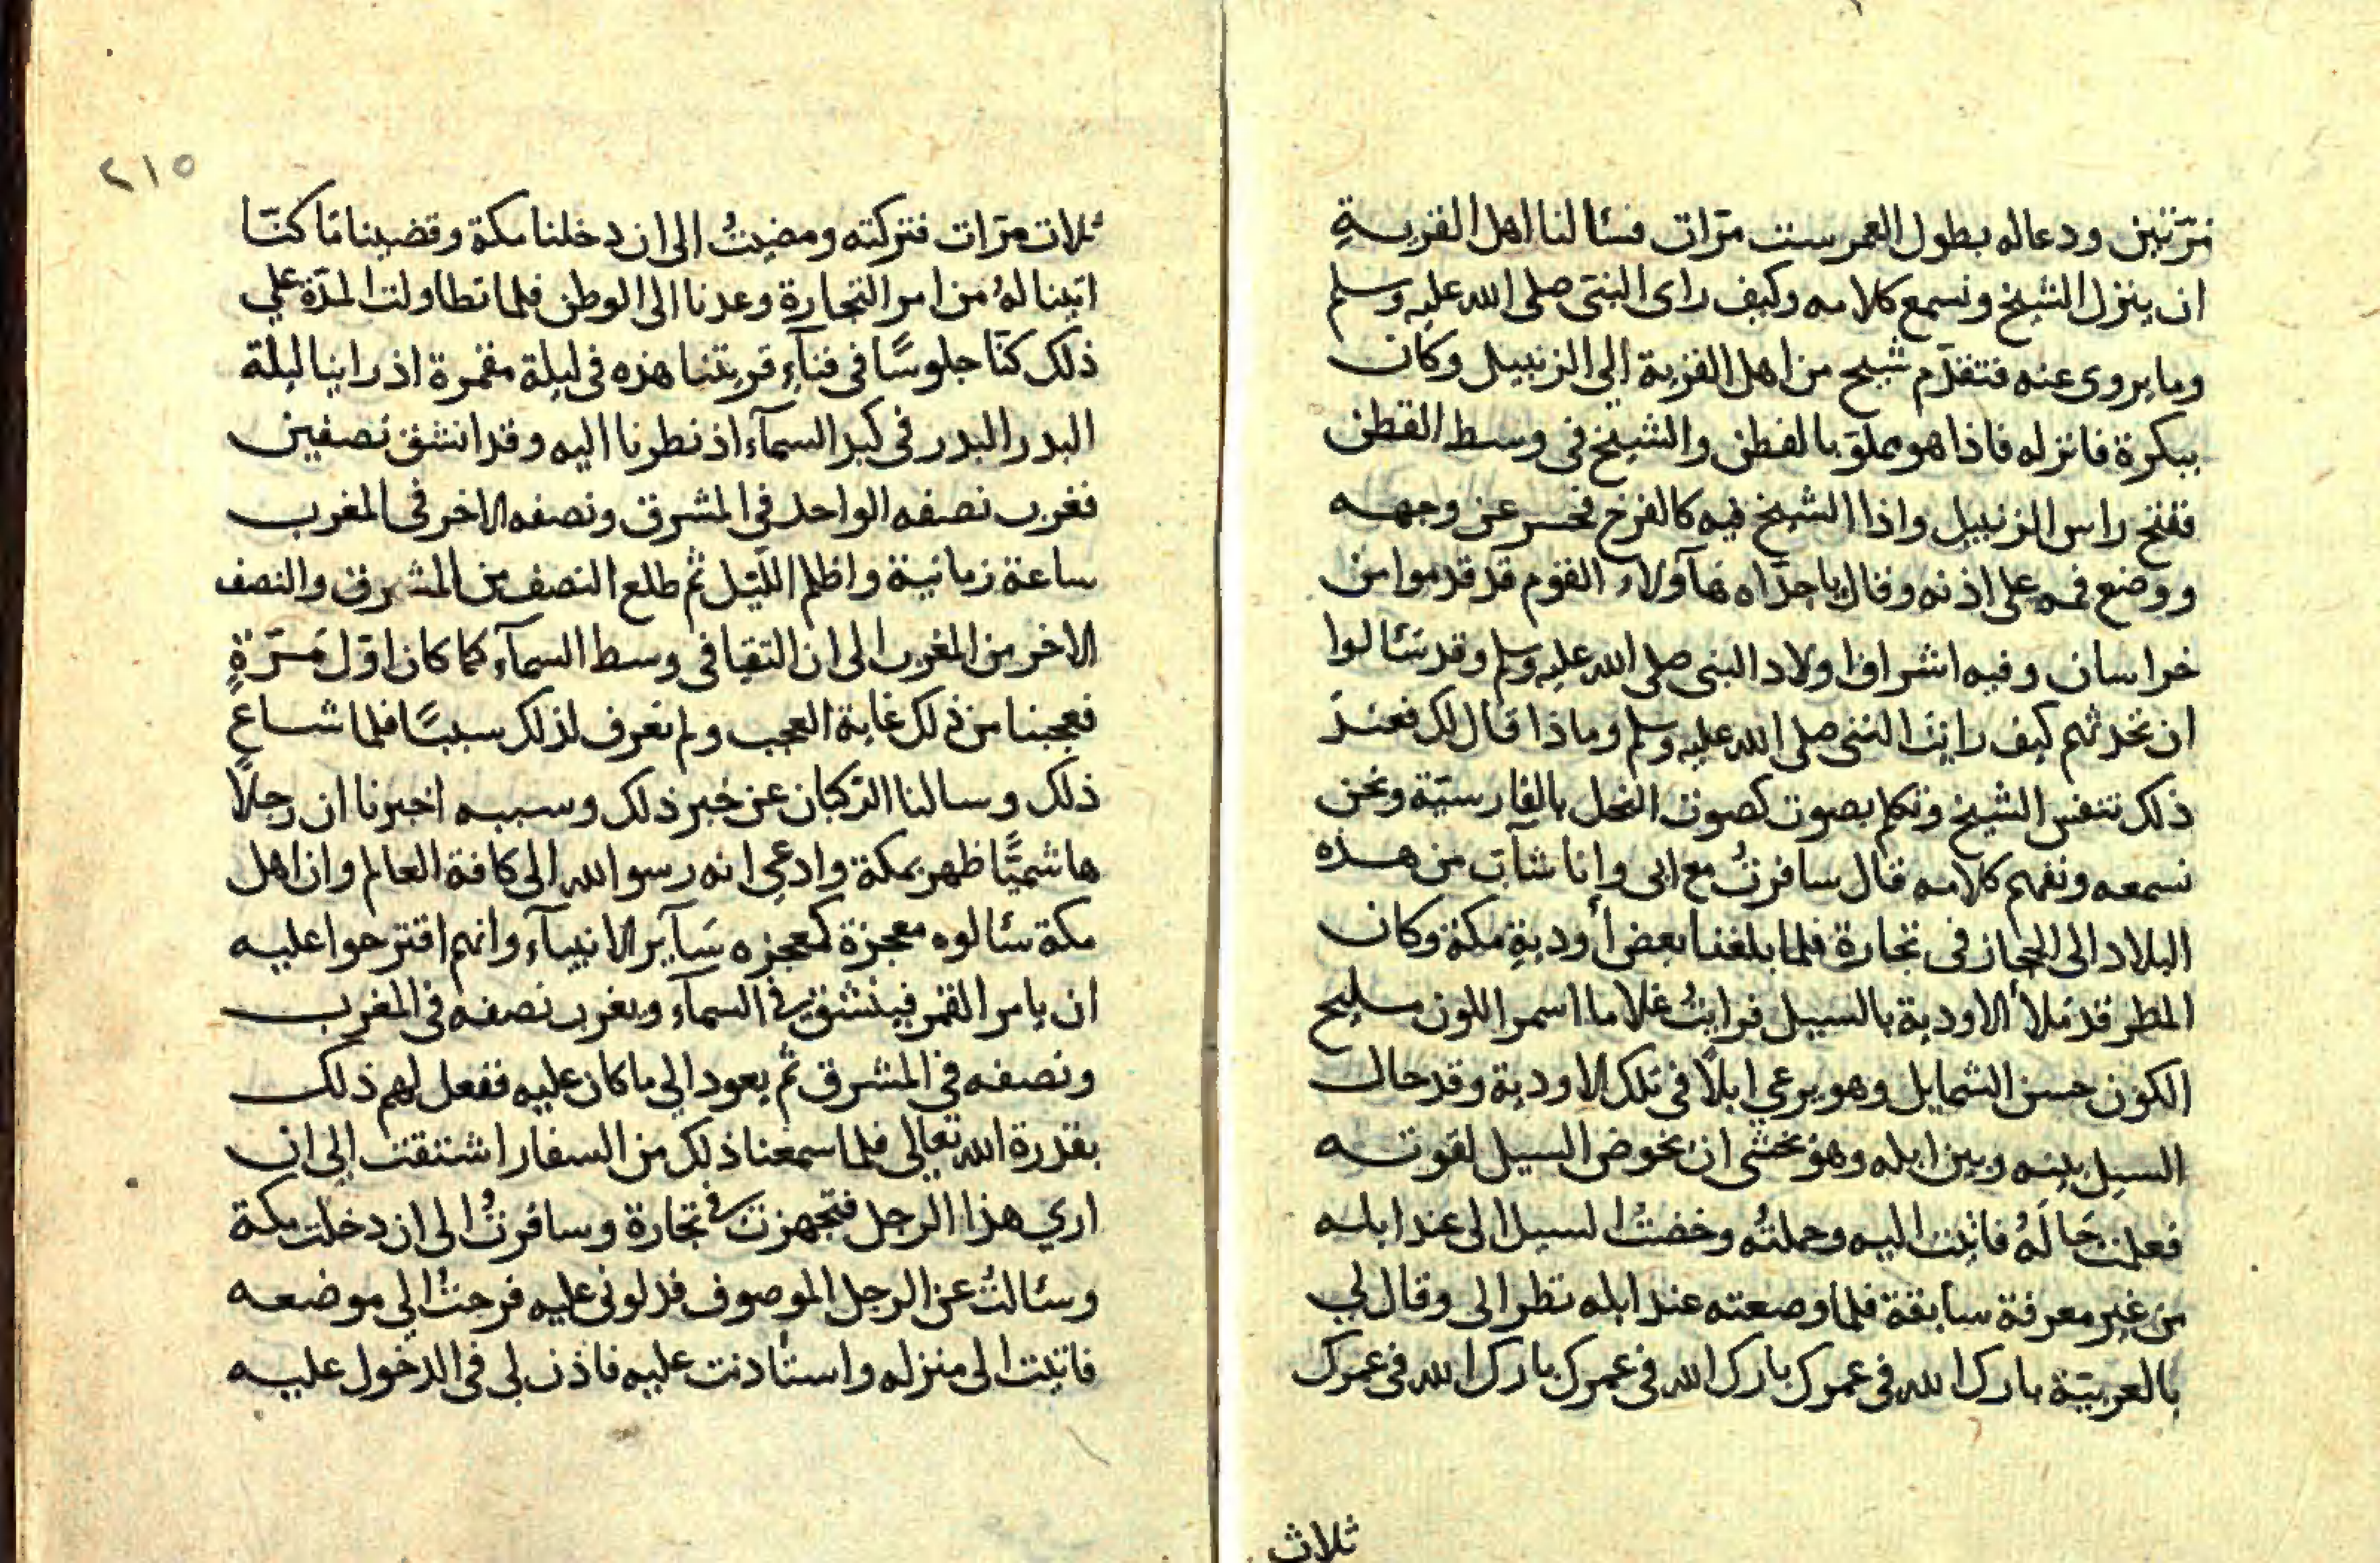 مرّتين ودعا له بطول العمر ست مرّات فسئالنا اهل القريةِ
ان ينزل الشيخ ونسمع كلامه وكيف راى النبيّ صلى الله عليه وسلم
وما يروى عنه فتقدّم شيخ من اهل القرية الى الزنبيل وكان
ببكرة فانزله فاذا هو مملوّ بالقطن والشيخ في وسط القطن
ففتح راس الزنبيل واذا الشيخ فيه كالفرخ فحسر عن وجهه
ووضع فمه على اذنه وقال يا جدّاه هآولاء القوم قد قدموا من
خراسان وفيه اشراف اولاد النبي صلى الله عليه وسلم وقد سئالوا
ان تحدثهم كيف رايت النبي صلى الله عليه وسلم وماذا قال لك فعند
ذلك تنفس الشيخ وتكلم بصوت كصوت النحل بالفارسيّة ونحن
نسمعه ونفهم كلامه قال سافرتُ مع ابى وانا شآبّ من هذه
البلاد الى الحجاز فى تجارة فلما بلغنا بعض أوديةِ مكة وكان
المطر قد ملأ الاودية بالسيل فرايتُ غلاما اسمر اللون مليح
الكون حسن الشمايل وهو يرعي ابلًا في تلك الاودية وقد حال
السيل بينه وبين ابله وهو يخشى ان يخوض السيل لقوته
فعلمت حَالَهُ فاتيت اليه وحملتُه وخضتُ السيل الى عند ابله
من غير معرفة سابقة فلما وضعته عند ابله نظر الى وقال لي
بالعربيّة بارك الله فى عمرك بارك الله فى عمرك بارك الله فى عمرك
ثلاث
٢١٥
ثلاث مرّات فتركته ومضيتُ الى ان دخلنا مكة وقضينا مَا كنّا
اتينا لهُ من امر التجارة وعدنا الى الوطن فلما تطاولت المدّة علي
ذلك كنّا جلوسًا فى فنآءِ قريتنا هذه فى ليلة مقمرة اذ راينا ليلة
البدر البدر فى كبد السمآء اذ نظرنا اليه وقد انشق نصفين
فغرب نصفه الواحد في المشرق ونصفه الاخر في المغرب
ساعة زمانية واظلم اللّيل ثم طلع النصف من المشرق والنصف
الاخر من المغرب الى ان التقيا فى وسط السمآء كما كان اوّل مَرّةٍ
فعجبنا من ذلك غاية العجب ولم نعرف لذلك سببًا فلما شاع
ذلك وسالنا الرّكبان عن خبر ذلك وسببه اخبرنا ان رجلًا
هاشميًّا ظهر بمكة وادعي انه رسو الله الى كافة العالم وان اهل
مكة سئالوه معجزة كمعجزه سَآير الانبيآء وانهم اقترحوا عليه
ان يامر القمر فينشق في السمآء ويغرب نصفه فى المغرب
ونصفه فى المشرق ثم يعود الي ما كان عليه ففعل لهم ذلك
بقدرة الله تعالي فلما سمعنا ذلك من السفار اشتقت الى ان
اري هذا الرجل فتجهزت في تجارة وسافرتُ الى ان دخلت مكة
وسئالتُ عن الرجل الموصوف فدلونى عليه فرحتُ الي موضعه
فاتيت الى منزله واستأدنت عليه فاذن لى فى الدخول عليه